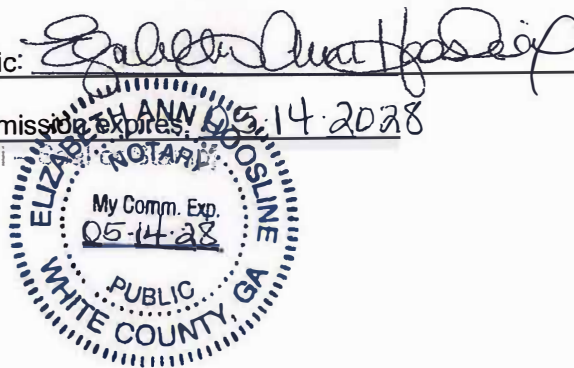 ic: Elizabeth Ann Hoosline
mission expires: 05.14.2028
ELIZABETH ANN HOOSLINE
NOTARY
My Comm. Exp.
05-14-28
PUBLIC
WHITE COUNTY, GA